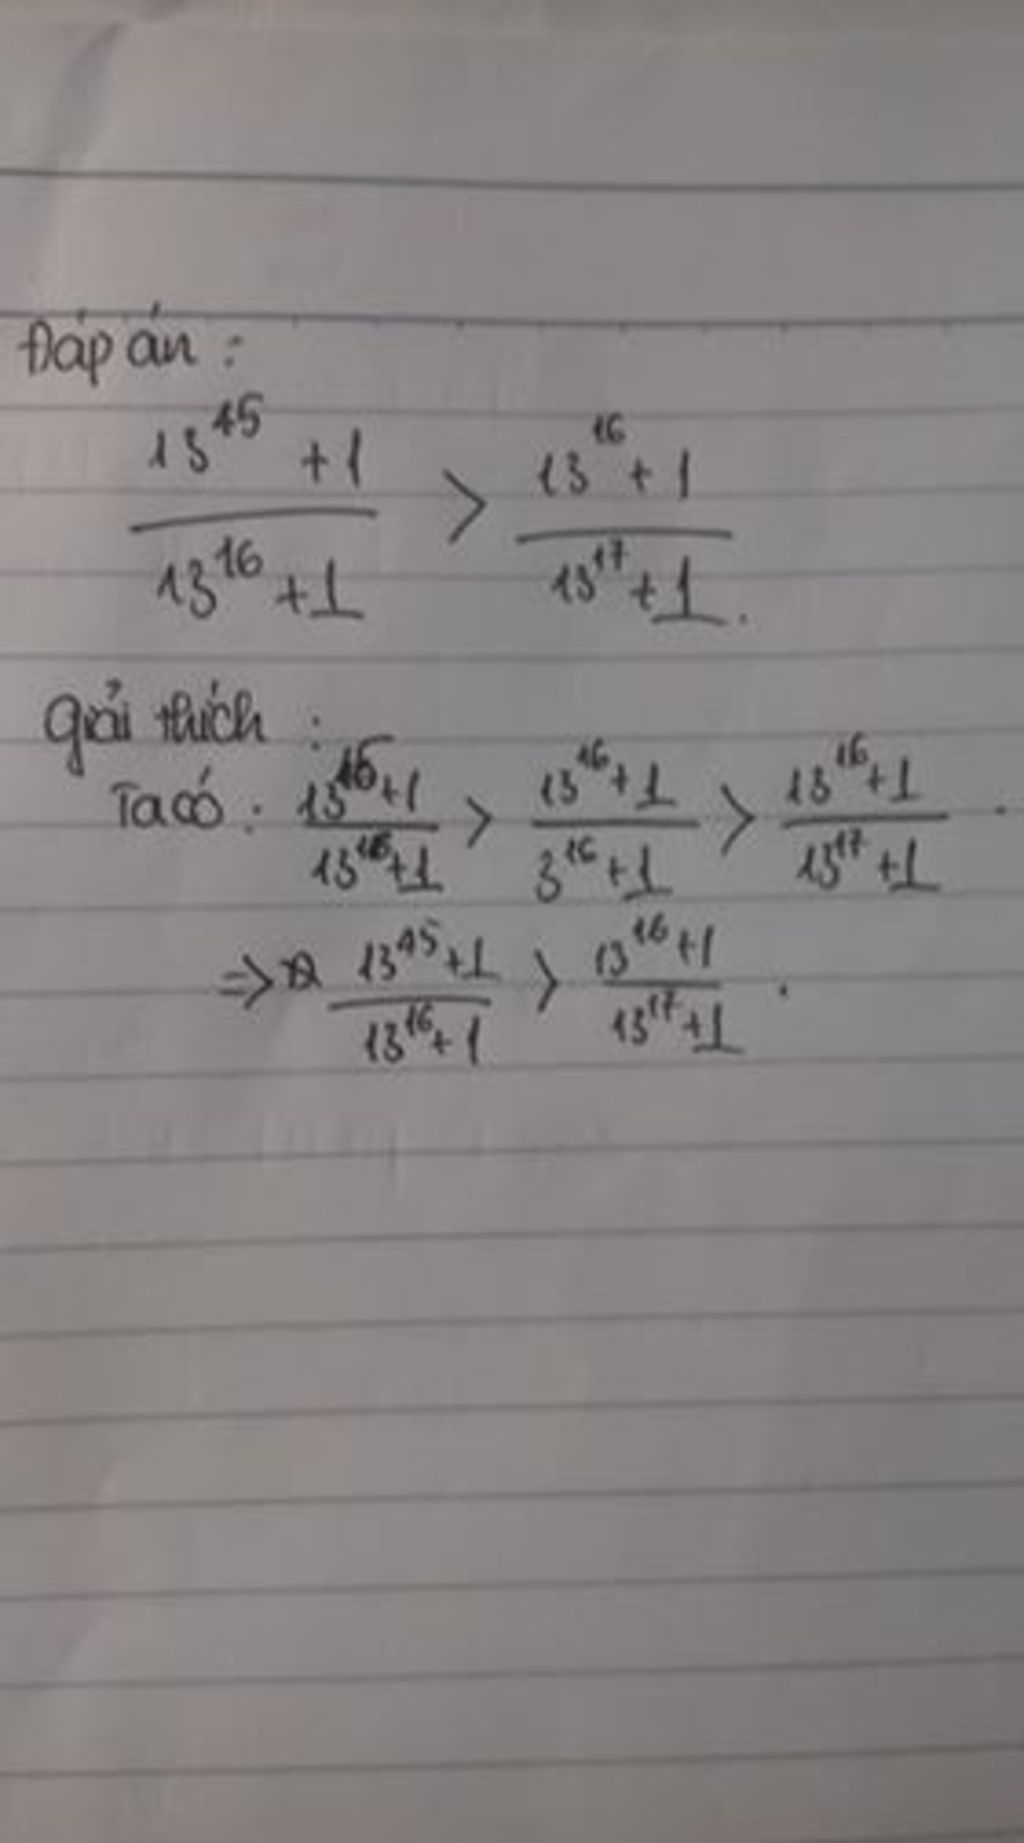 Đáp án :
13^15 + 1 / 13^16 + 1 > 13^16 + 1 / 13^17 + 1 .
Giải thích :
Ta có : 13^15 + 1 / 13^16 + 1 > 13^16 + 1 / 3^16 + 1 > 13^16 + 1 / 13^17 + 1 .
=> 13^15 + 1 / 13^16 + 1 > 13^16 + 1 / 13^17 + 1 .